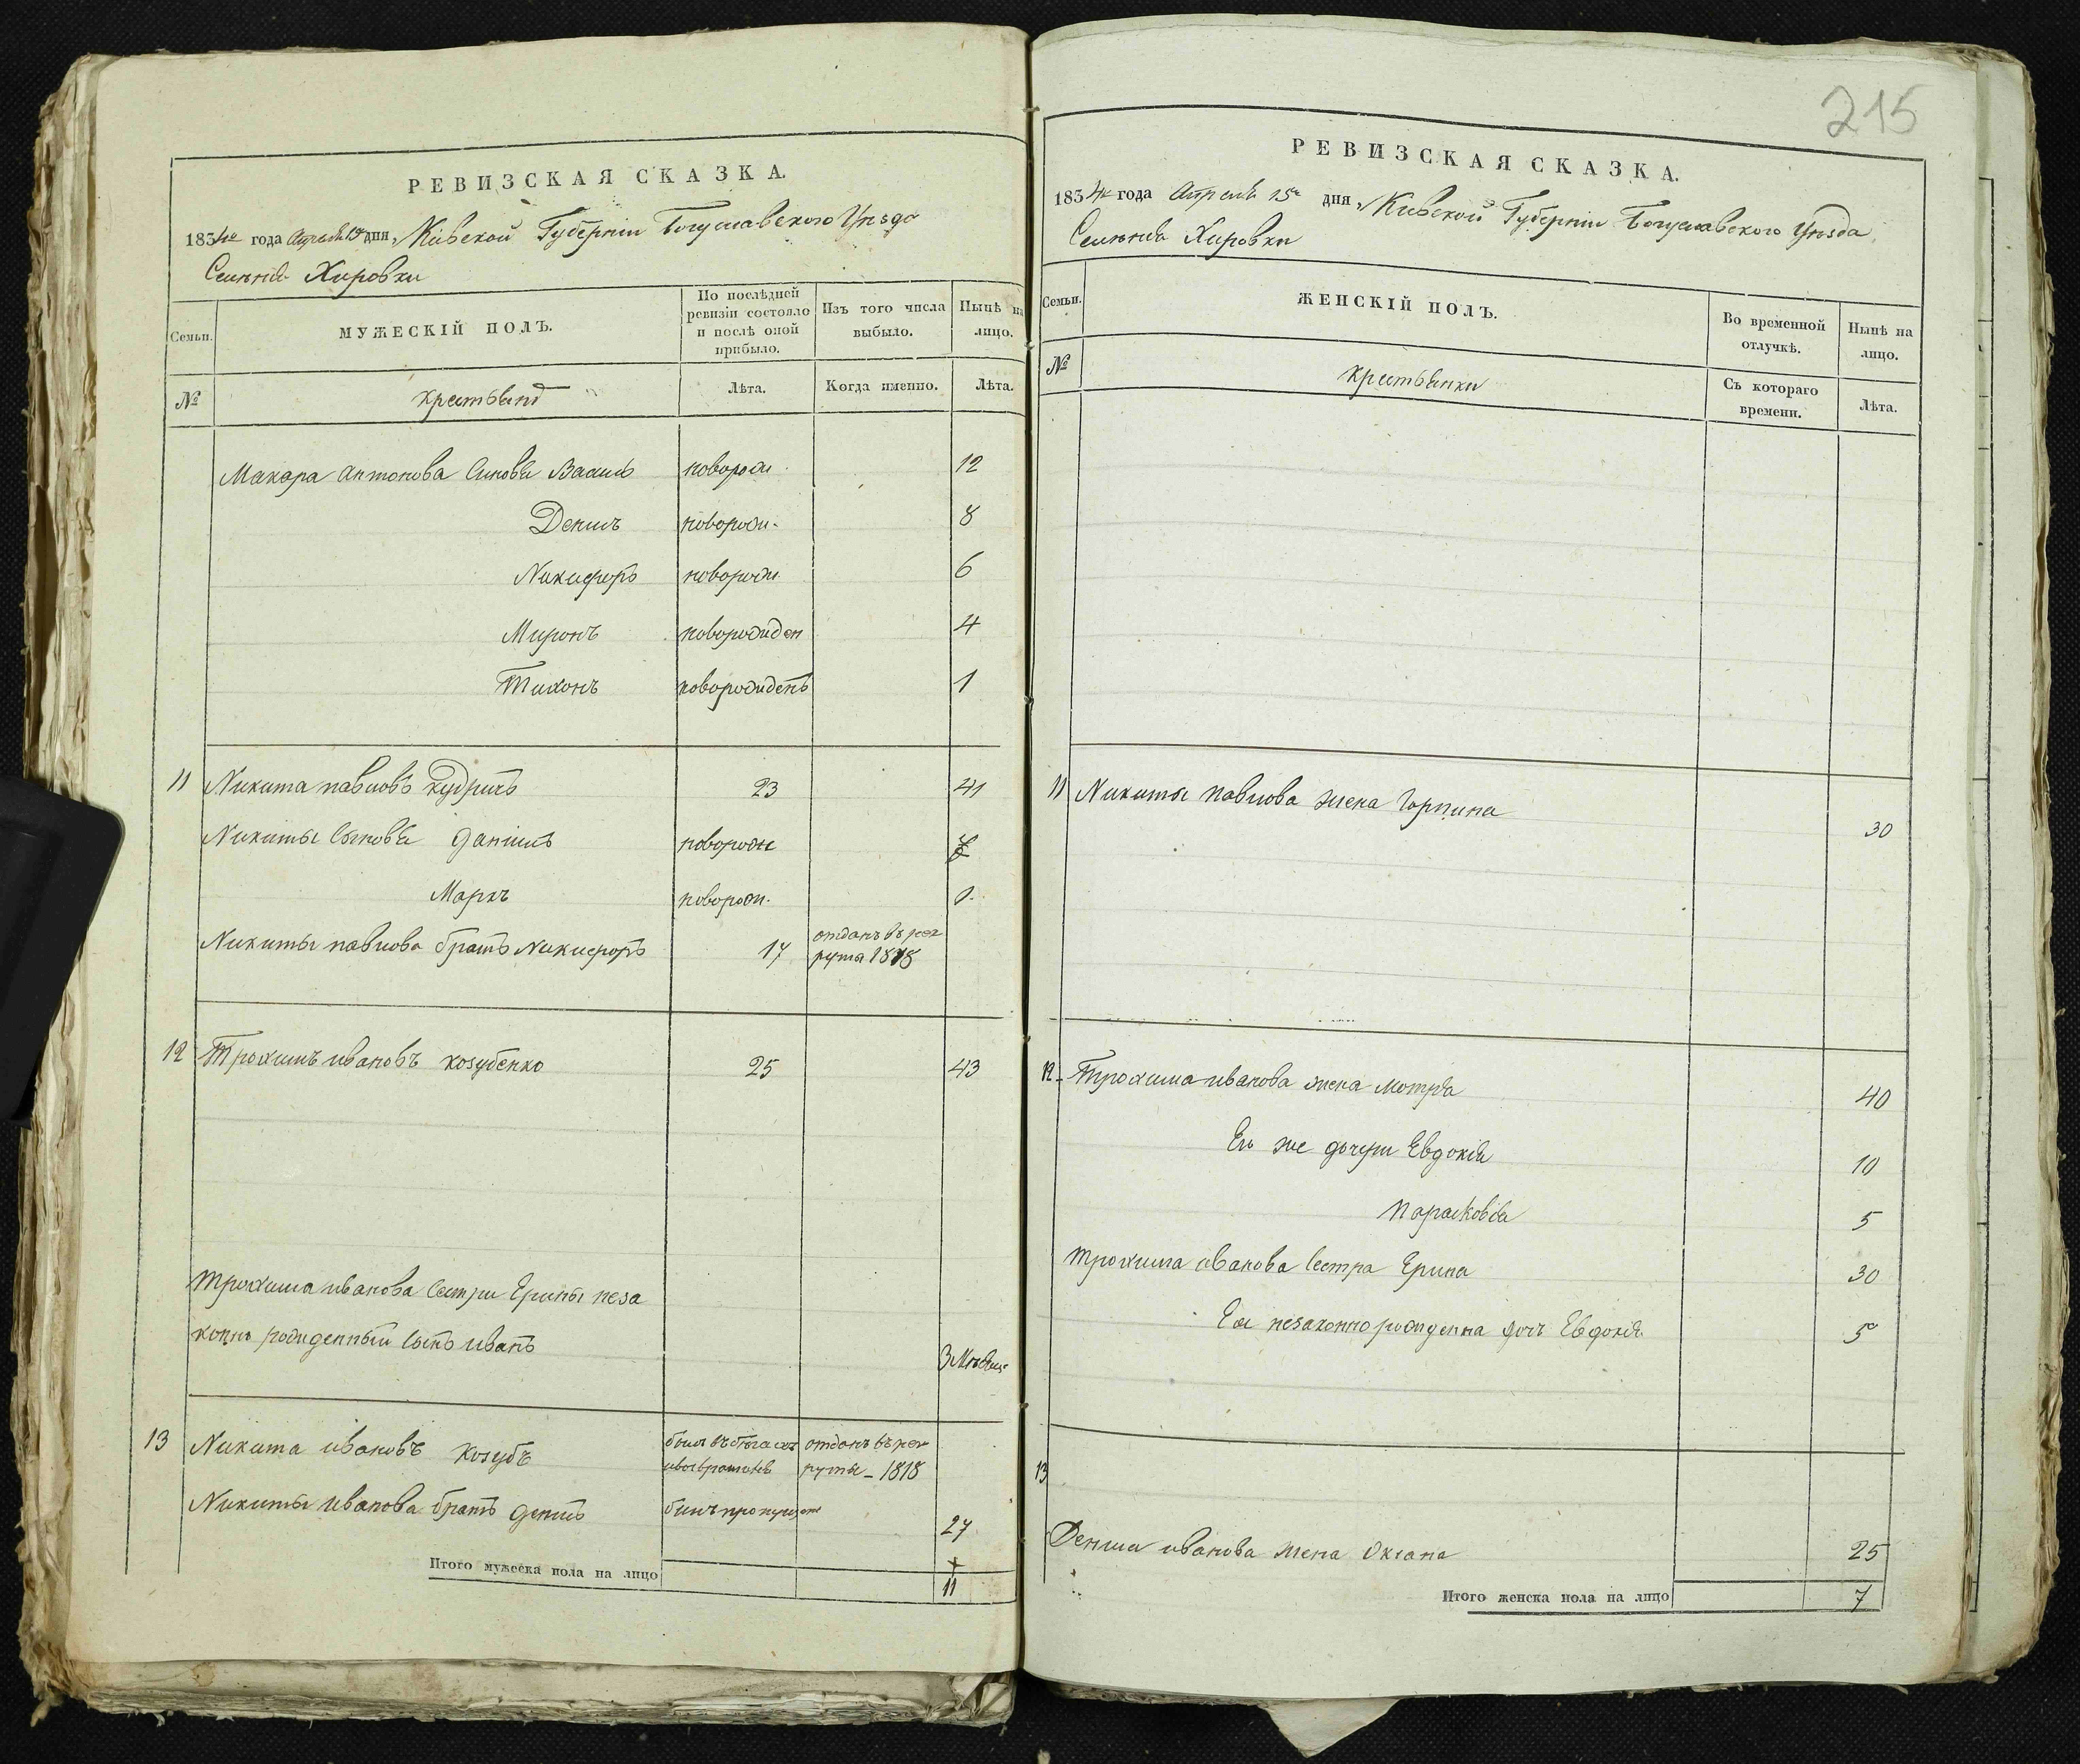 РЕВИЗСКАЯ СКАЗКА.
1834го года Апреля 15го дня, Кіевской Губерніи Богуславского Уѣзда
Селенія Хировки
Семьи.
МУЖЕСКІЙ ПОЛЪ.
По послѣдней ревизіи состояло и послѣ оной прибыло.
Изъ того числа выбыло.
Нынѣ на лицо.
№
крестьянъ
Лѣта.
Когда именно.
Лѣта.
Макара Антонова Синовья Василь новорож. 12
Денисъ новорож. 8
Никифоръ новорож. 6
Миронъ новорожден 4
Тихонъ новорожденъ 1
11 Никита павловъ кудринъ 23 41
Никиты Сыновья Даніилъ новорож
Маркъ новорож. 1.
Никиты павлова братъ Никифоръ 17 отданъ въ рек
руты 1818
12 Трохимъ ивановъ козубенко 25 43
Трохима иванова Сестри Ерины неза
конно рожденный Сынъ иванъ 3 Мѣсяц.
13 Никита ивановъ козубъ былъ въ бѣгахъ отданъ въ рек
руты - 1818
Никиты иванова братъ денисъ былъ пропущен 27
Итого мужеска пола на лицо 11
215
РЕВИЗСКАЯ СКАЗКА.
1834го года Апреля 15го дня, Кіевской Губерніи Богуславского Уѣзда
Селенія Хировки
Семьи.
ЖЕНСКІЙ ПОЛЪ.
Во временной отлучкѣ.
Нынѣ на лицо.
№
крестьянки
Съ котораго времени.
Лѣта.
11 Никиты павлова жена Горпина 30
12 Трохима иванова жена мотря 40
Ею же дочери Евдокія 10
Парасковія 5
Трохима иванова Сестра Ерина 30
Ея незаконно рожденна дочь Евдокія 5
13
Дениса иванова жена Оксана 25
Итого женска пола на лицо 7